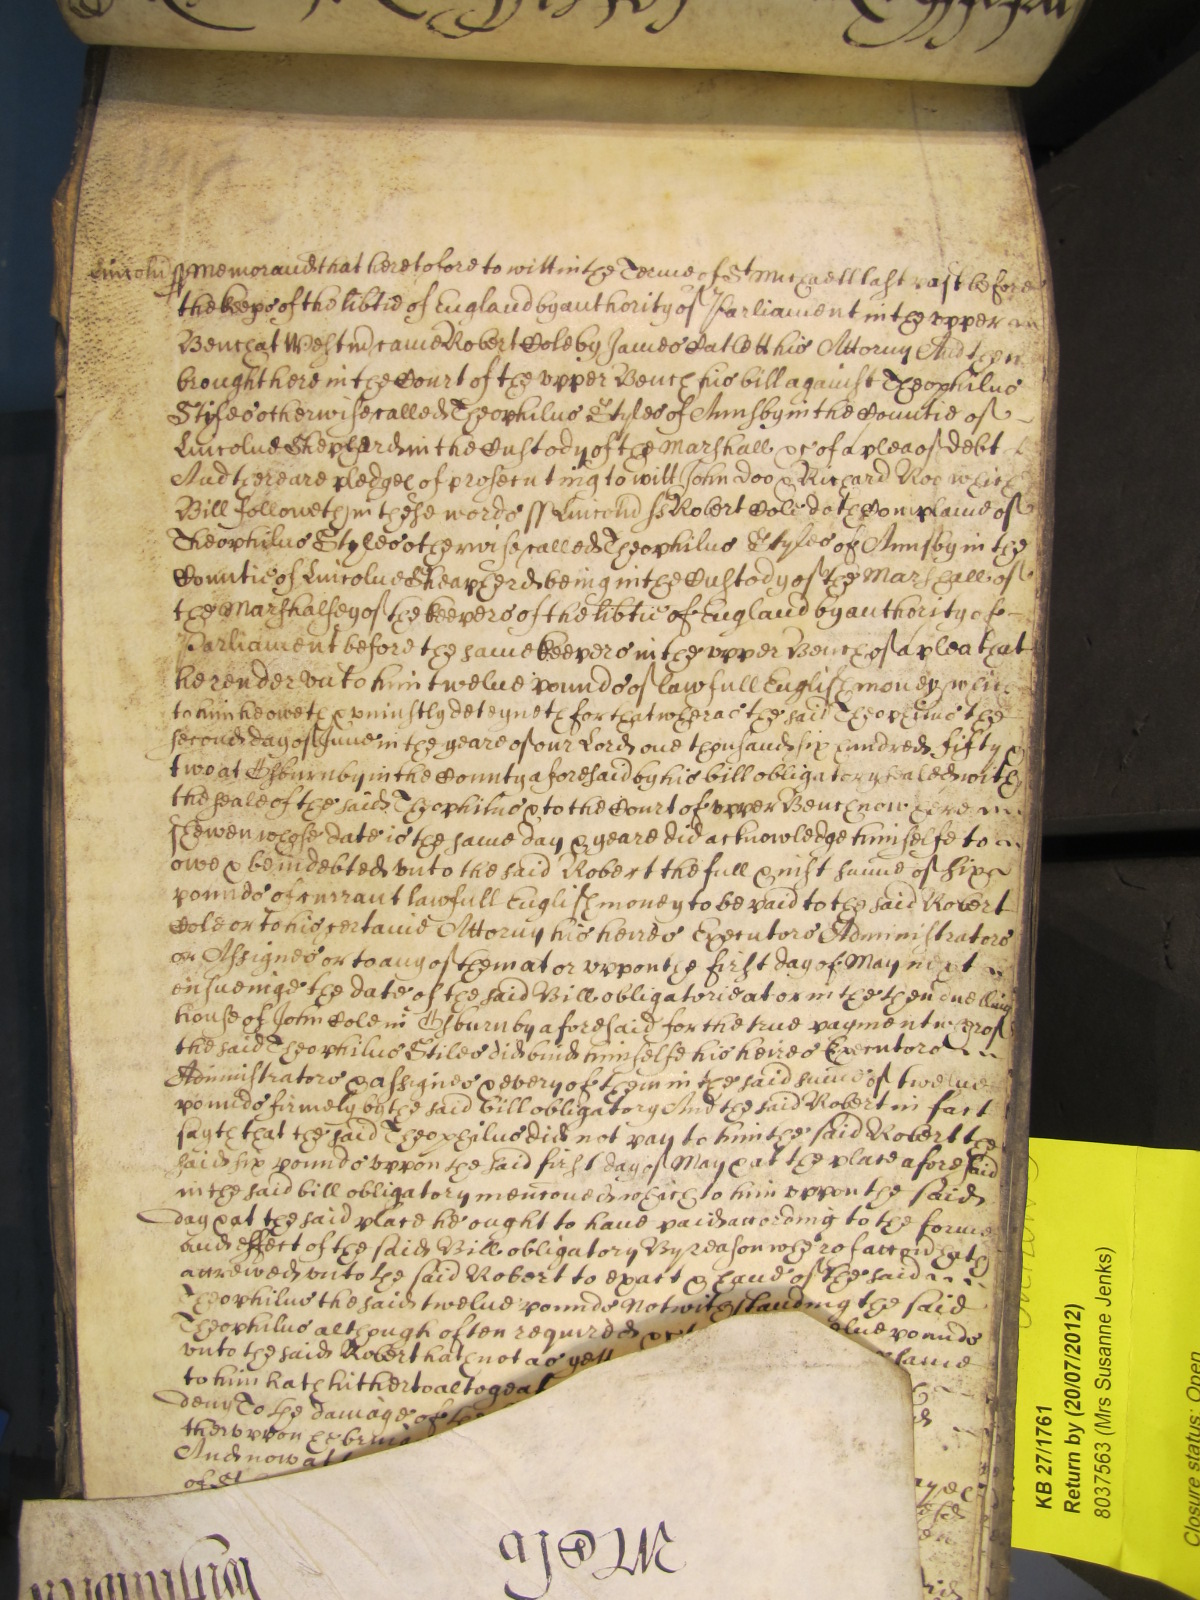 Lincoln ss Memorand that heretofore to witt in the Terme of St Michaell last past before
the keeps of the libtie of England by authority of Parliament in the upper
Bench at Westm came Robert Cole by James his Attorny And then
brought here in the Court of the upper Bench his bill against Theophilus
Styles otherwise called Theophilus Styles of Annsby in the Countie of
Lincolne Shepherd in the Custody of the Marshall &c of a plea of debt
And there are pledges of prosecuting to witt John Doo & Richard Roo which
Bill followeth in these words ss Lincoln ss Robert Cole doth Complaine of
Theophilus Styles otherwise called Theophilus Styles of Annsby in the
Countie of Lincolne Sheapherd being in the Custody of the Marshall of
the Marshalsey of the keepers of the libtie of England by authority of
Parliament before the same keepers in the upper Bench of a plea that
he render unto him twelue pounds of lawfull English money which
to him he oweth & uniustly deteyneth for that wheras the said Theophilus the
second day of June in the yeare of our Lord one thousand six hundred fifty &
two at Osburnby in the County aforesaid by his bill obligatory sealed with
the seale of the said Theophilus & to the Court of upper Bench now here
shewen whose date is the same day & yeare did acknowledge himselfe to
owe & be indebted unto the said Robert the full & iust sume of sixe
pounds of currant lawfull English money to be paid to the said Robert
Cole or to his certaine Attorny his heires Executors Administrators
or Assignes or to any of them at or uppon the first day of May next
ensueinge the date of the said Bill obligatorie at or in the then dwelling
house of John Cole in Osburnby aforesaid for the true payment wherof
the said Theophilus Stiles did bind himselfe his heires Executors
Administrators & assignes & every of them in the said sume of twelue
pounds firmely by the said bill obligatory And the said Robert in fact
sayth that the said Theophilus did not pay to him the said Robert the
said six pounds uppon the said first day of May & at the place aforesaid
in the said bill obligatory mencioned which to him uppon the said
day & at the said place he ought to haue paid according to the forme
and effect of the said Bill obligatory By reason wherof accon hath
accrewed unto the said Robert to exact & haue of the said
Theophilus the said twelue pounds Notwithstanding the said
Theophilus although often required &c elue pounds
unto the said Robert hath not as yett
to him hath hitherto altogea
deny To the damage of the
therupon he bring
And now at
of St
KB 27/1761
Return by (20/07/2012)
8037563 (Mrs Susanne Jenks)
Closure status: Open